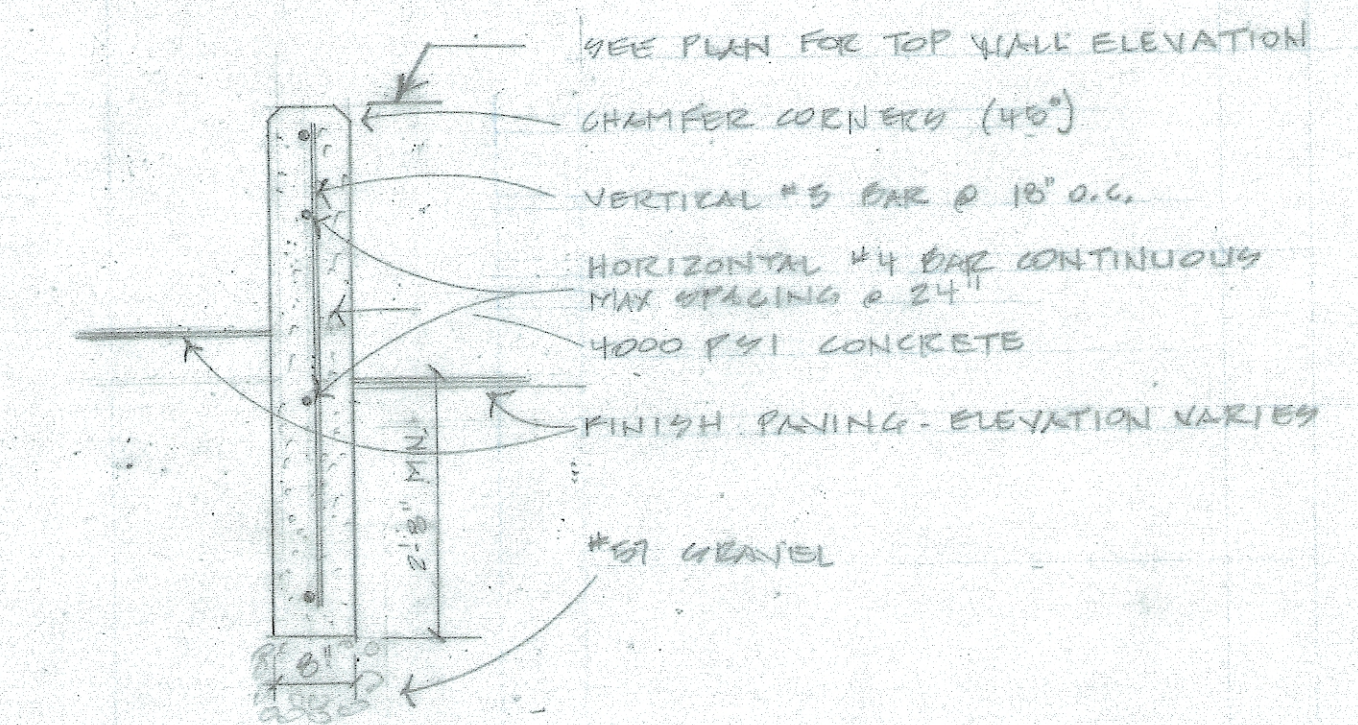 SEE PLAN FOR TOP WALL ELEVATION
CHAMFER CORNERS (45°)
VERTICAL #5 BAR @ 18" O.C.
HORIZONTAL #4 BAR CONTINUOUS
MAX SPACING @ 24"
4000 PSI CONCRETE
FINISH PAVING - ELEVATION VARIES
2'-8" MIN
#57 GRAVEL
8"